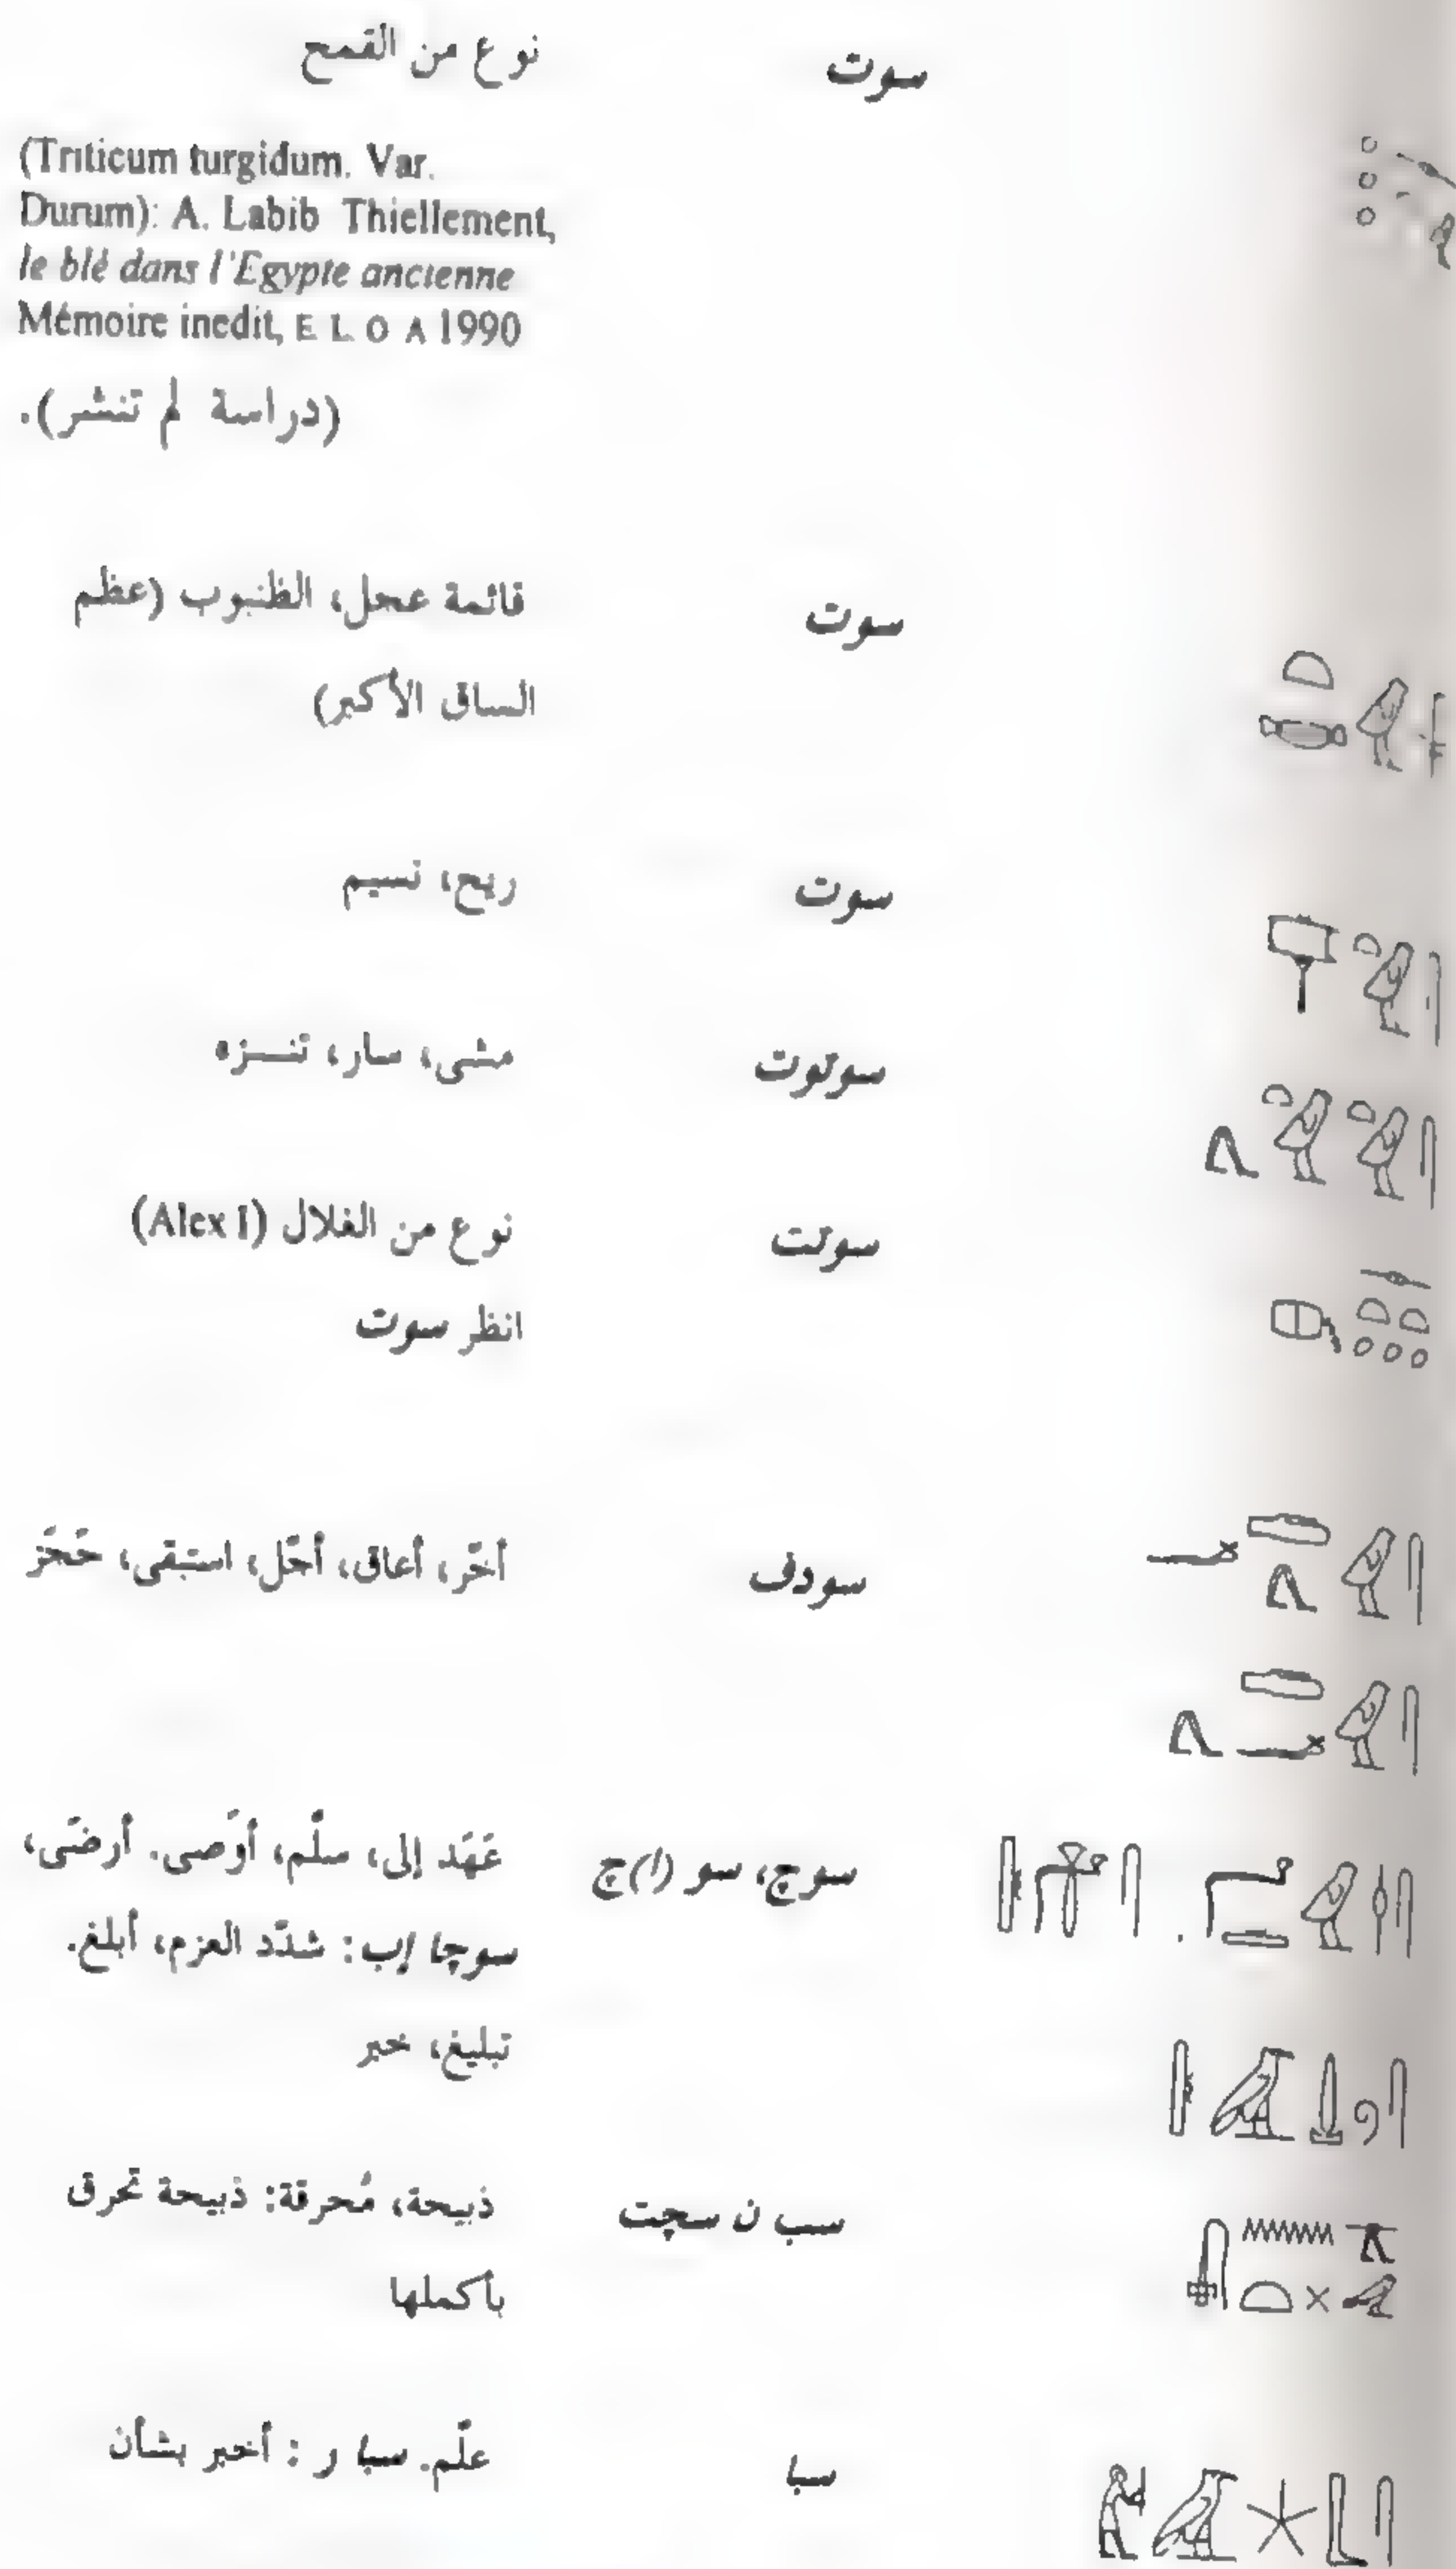 سوت نوع من القمح
(Triticum turgidum. Var.
Durum): A. Labib Thiellement,
le blé dans l'Egypte ancienne
Mémoire inedit, E L O A 1990
(دراسة لم تنشر).
سوت قائمة عجل، الظنبوب (عظم
الساق الأكبر)
سوت ريح، نسيم
سوتوت مشى، سار، تنـــزه
سوتت نوع من الغلال (Alex I)
انظر سوت
سودف أخّر، أعاق، أجّل، استبقى، حَجَز
سوچ، سو (ا)چ عَهَد إلى، سلّم، أوَصى. أرضَى،
سوچا إب: شدّد العزم، أبلغ.
تبليغ، خبر
سب ن سچت ذبيحة، مُحرقة: ذبيحة تحرق
بأكملها
سبا علّم. سبا ر : أخبر بشأن